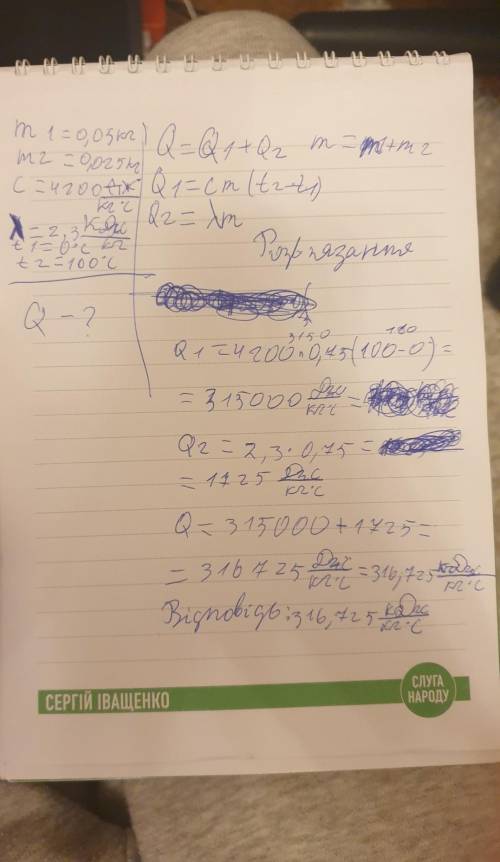 m1=0,05кг
m2=0,025кг
c=4200 Дж/кг°C
λ=2,3 КДж/кг
t1=0°C
t2=100°C
Q-?
Q=Q1+Q2 m=m1+m2
Q1=cm(t2-t1)
Q2=λm
Розв'язання
3150 100
Q1=4200·0,75(100-0)=
=315000 Дж/кг°C=
Q2=2,3·0,75=
=1725 Дж/кг°C
Q=315000+1725=
=316725 Дж/кг°C=316,725 кДж/кг°C
Відповідь:316,725 кДж/кг°C
СЕРГІЙ ІВАЩЕНКО
СЛУГА
НАРОДУ